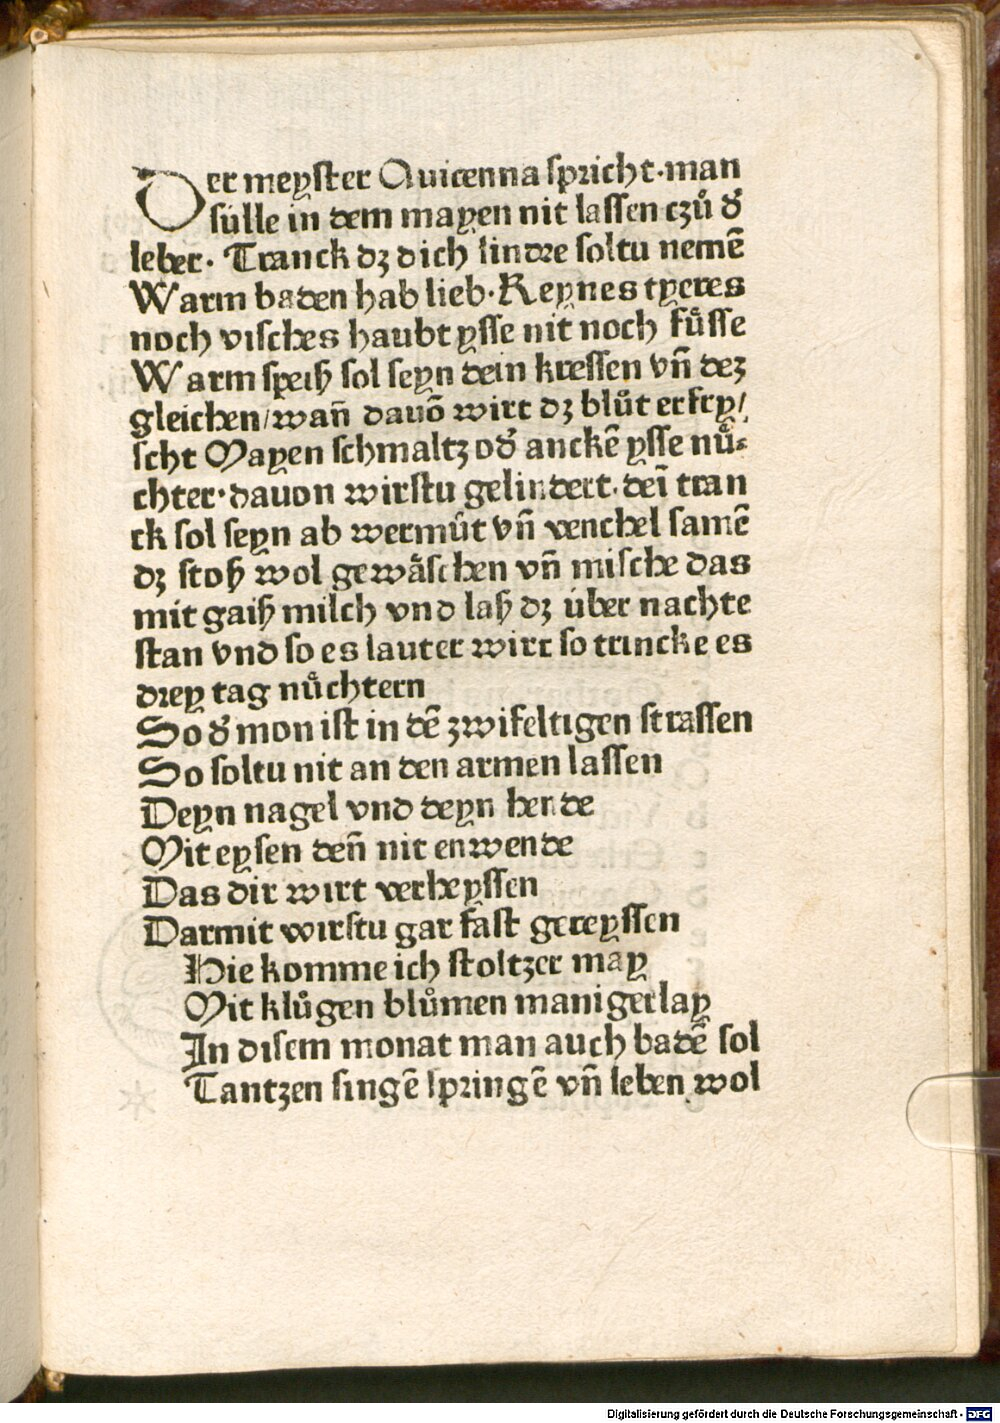 Der meyster Auicenna spricht·man
sülle in dem mayen nit lassen czů dˀ
leber· Tranck dz dich lindre soltu nemē
Warm baden hab lieb·Keynes tyeres
noch visches haubt ysse nit noch fůsse
Warm speiß sol seyn dein kressen vn̄ dez
gleichen/wan̄ dauō wirt dz blůt erfry/
scht Mayen schmaltz odˀ anckē ysse nů⸗
chter·dauon wirstu gelindert·deī tran
ck sol seyn ab wermůt vn̄ venchel samē
dz stoß wol gewäschen vn̄ mische das
mit gaiß milch vnd laß dz über nachte
stan vnd so es lauter wirt so trincke es
drey tag nůchtern
So dˀ mon ist in dē zwifeltigen strassen
So soltu nit an den armen lassen
Deyn nagel vnd deyn hende
Mit eysen den̄ nit enwende
Das dir wirt verheyssen
Darmit wirstu gar fast gereyssen
Hie komme ich stoltzer may
Mit klůgen blůmen manigerlay
In disem monat man auch badē sol
Tantzen singē springē vn̄ leben wol
Digitalisierung gefördert durch die Deutsche Forschungsgemeinschaft - DFG